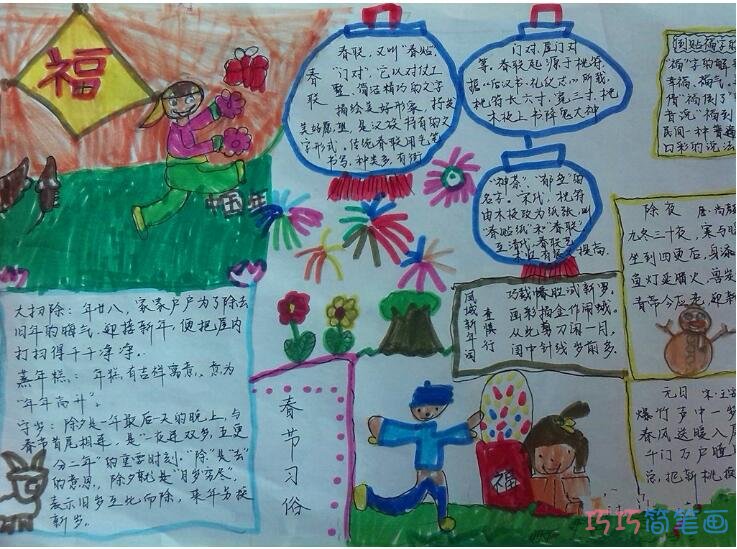 福
中国年
春联
春联,又叫"春贴,
"门对",它以对仗工
整、简洁精巧的文字
描绘美好形象,抒发
美好愿望,是汉族特有的文
字形式。传统春联用毛笔
书写,种类多,有街
门对、屋门对
等,春联起源于桃符。
据"后汉书·礼仪志"所载,
桃符长六寸,宽三寸,桃
木板上书降鬼大神
"神荼"、"郁垒"的
名字。宋代,桃符
由木板改为纸张,叫
"春贴纸"和"春联"。
提高.
倒贴福字的
"福"字的解
幸福、福气
情"福倒了"
音说"福到
民间一种
口彩的说法
除夜
九冬三十夜,寒与暖
坐到四更后,身添
鱼灯延腊火,兽炭
青帝今应老,迎新
凤城新年词
查慎行
巧裁幡胜试新罗,
画彩描金作闹蛾。
从此剪刀闲一月,
闺中针线岁前多。
元日
爆竹声中一岁
春风送暖入屠
千门万户曈
总把新桃换
大扫除:年廿八,家家户户为了除去
旧年的晦气,迎接新年,便把屋内
打扫得干干净净.
蒸年糕:年糕有吉祥寓意,意为
"年年高升"。
守岁:除夕是一年最后一天的晚上,与
春节首尾相连,是"一夜连双岁,五更
分二年"的重要时刻."除"是"去"
的意思,除夕就是"月穷岁尽",
表示旧岁至此而除,来年另换
新岁。
春节习俗
福
巧巧简笔画